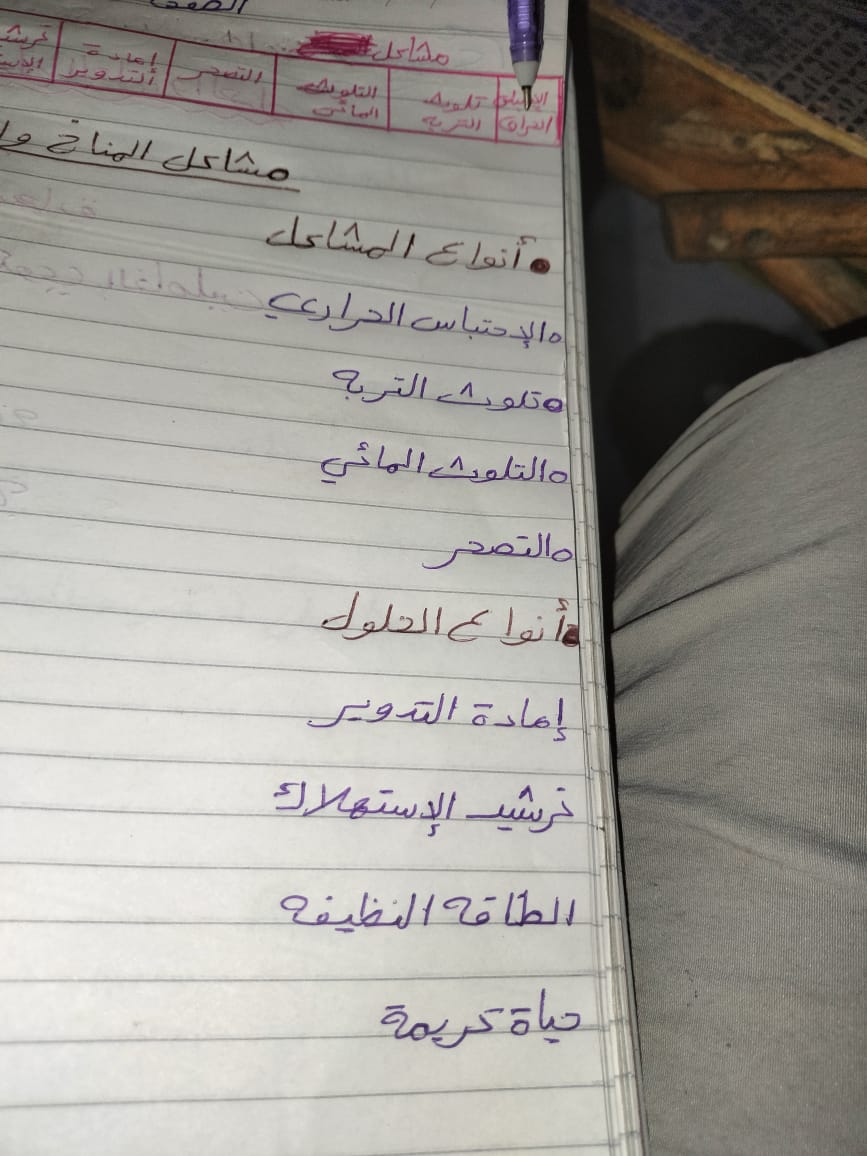 مشاكل
الإحتباس الحراري
تلوث التربه
التلوث المائي
التصحر
إعادة التدوير
ترشيد
مشاكل المناخ
• أنواع المشاكل
o الإحتباس الحراري
o تلوث التربه
o التلوث المائي
o التصحر
• أنواع الحلول
إعادة التدوير
ترشيد الإستهلاك
الطاقه النظيفه
حياة كريمة